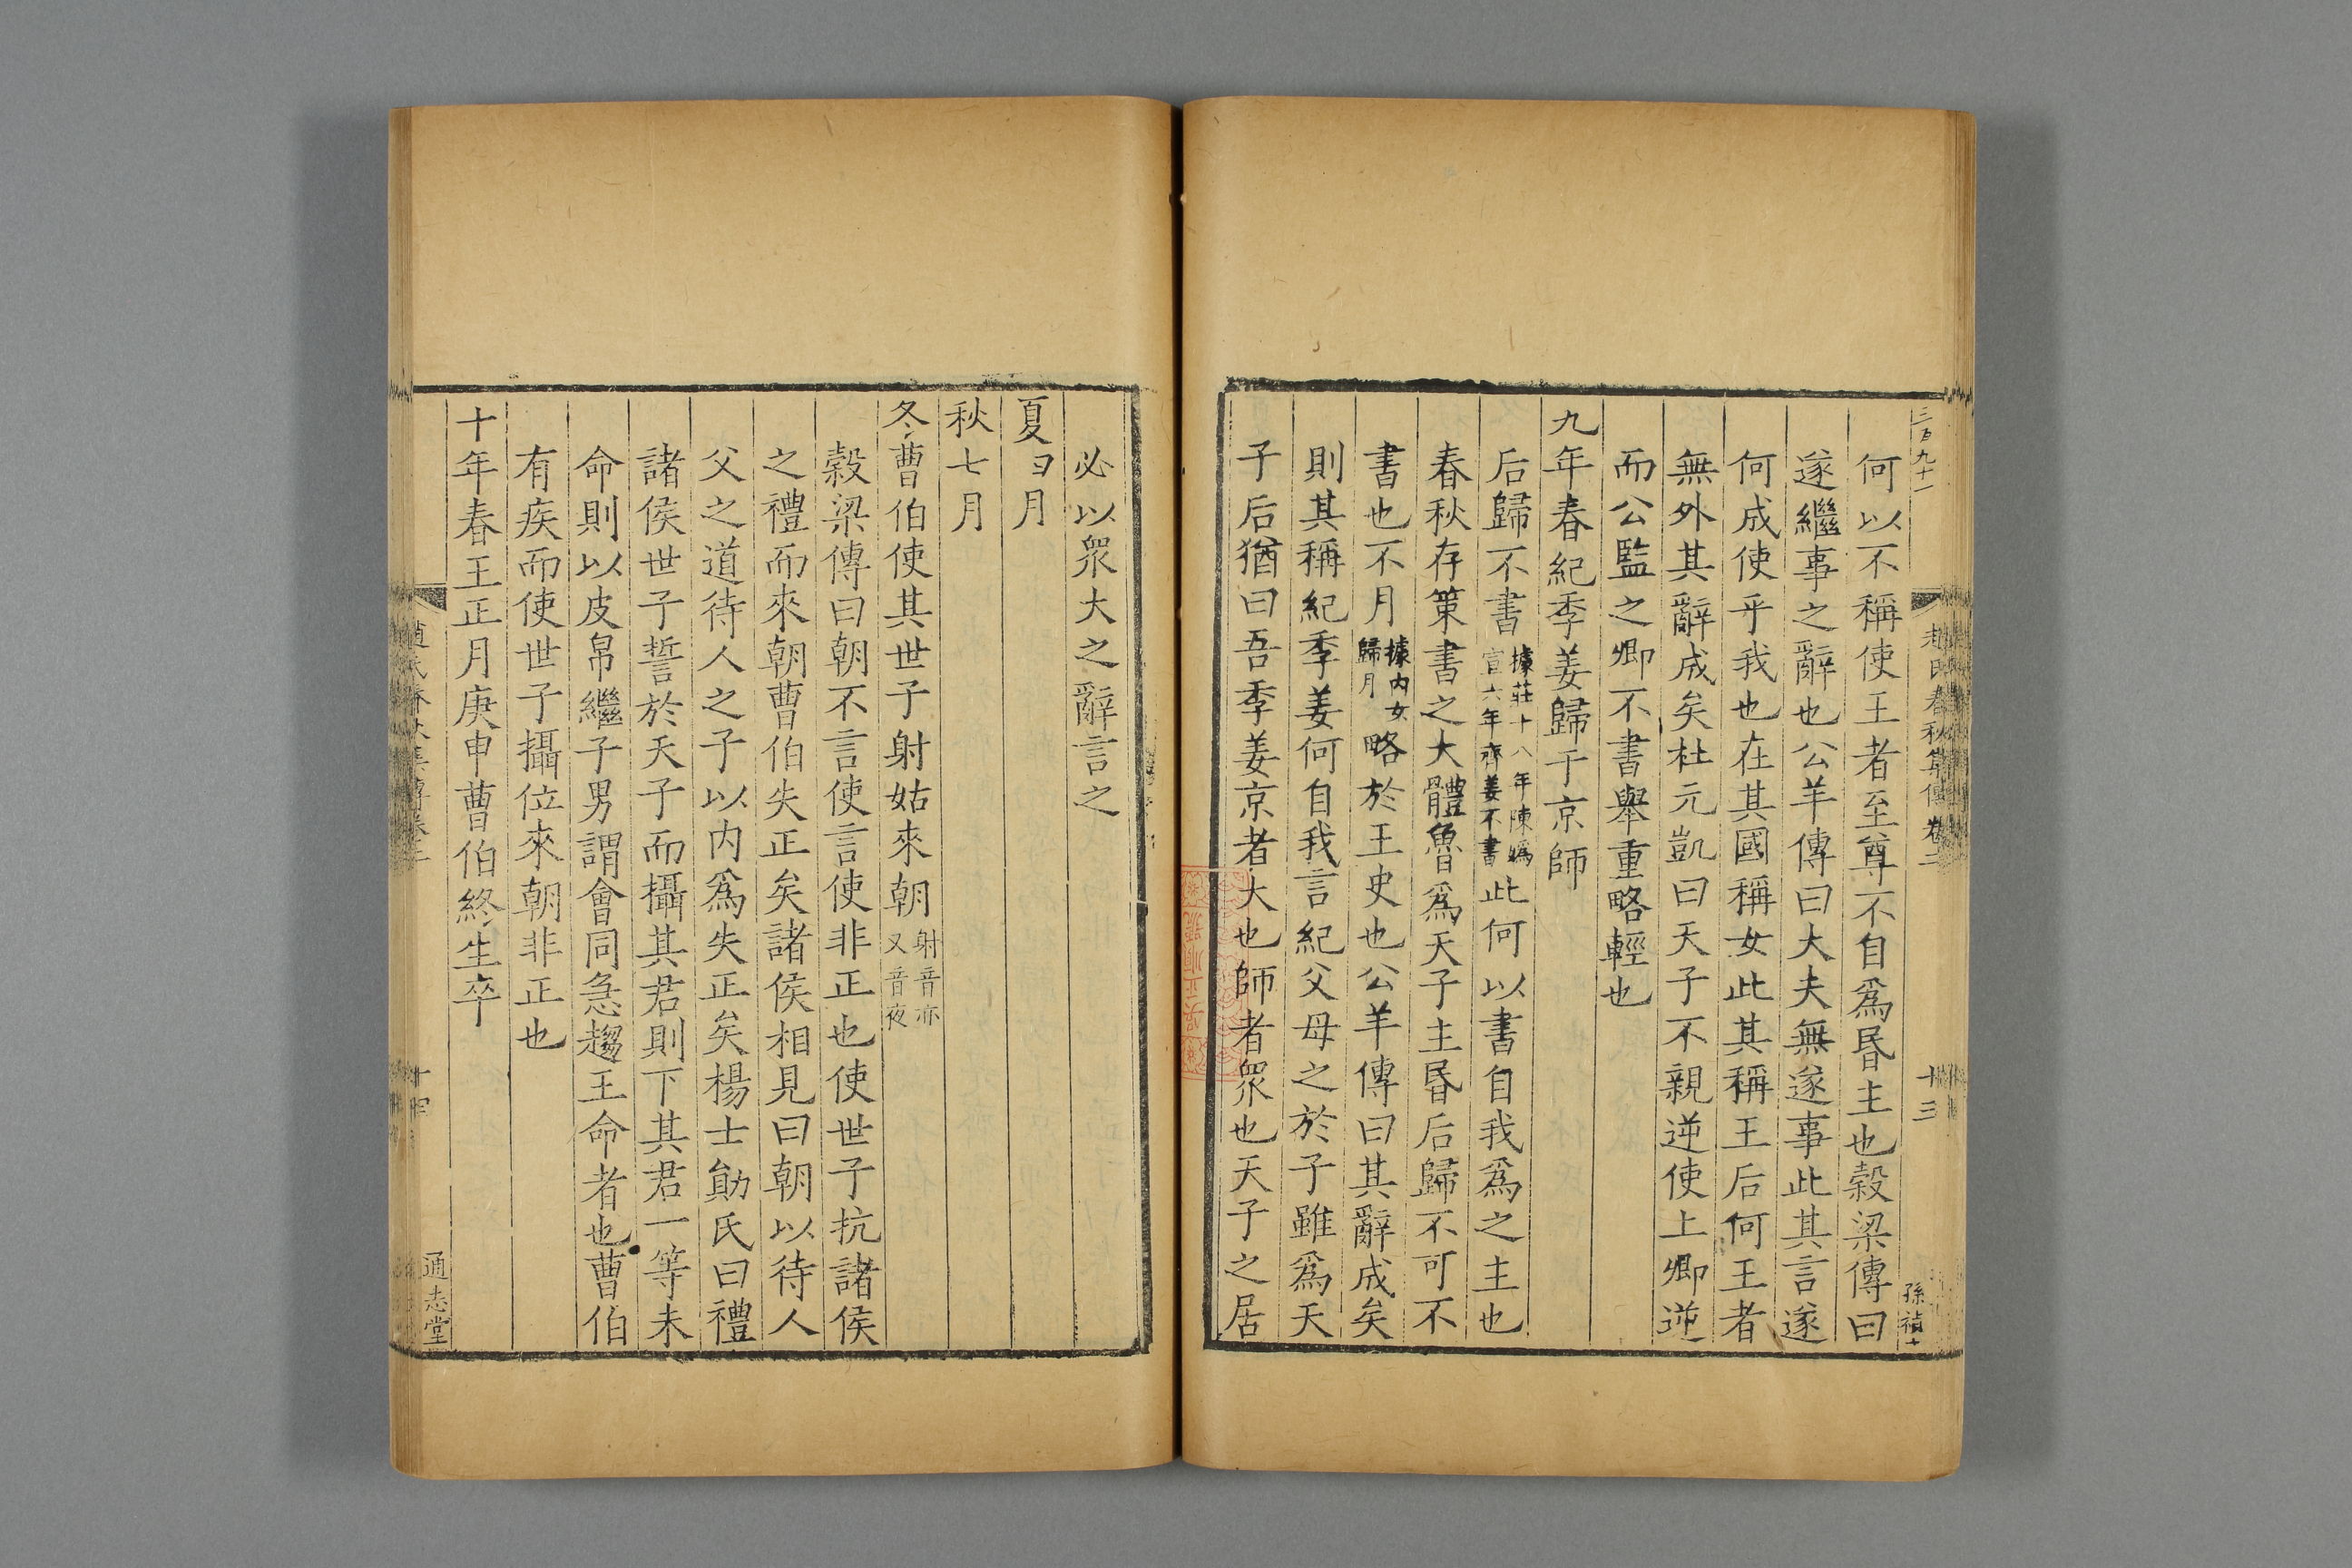 三百九十一
何以不稱使王者至尊不自爲昬主也穀梁傳曰
遂繼事之辭也公羊傳曰大夫無遂事此其言遂
何成使乎我也在其國稱女此其稱王后何王者
無外其辭成矣杜元凱曰天子不親逆使上卿逆
而公監之卿不書舉重略輕也
九年春紀季姜歸于京師
后歸不書據莊十八年陳嬀宣六年齊姜不書此何以書自我爲之主也
春秋存策書之大體魯爲天子主昬后歸不可不
書也不月據内女歸月略於王史也公羊傳曰其辭成矣
則其稱紀季姜何自我言紀父母之於子雖爲天
子后猶曰吾季姜京者大也師者衆也天子之居
趙氏春秋集傳卷二
十三
孫禎
必以衆大之辭言之
夏四月
秋七月
冬曹伯使其世子射姑來朝射音亦又音夜
穀梁傳曰朝不言使言使非正也使世子抗諸侯
之禮而來朝曹伯失正矣諸侯相見曰朝以待人
父之道待人之子以内爲失正矣楊士勛氏曰禮
諸侯世子誓於天子而攝其君則下其君一等未
命則以皮帛繼子男謂會同急趨王命者也曹伯
有疾而使世子攝位來朝非正也
十年春王正月庚申曹伯終生卒
通志堂